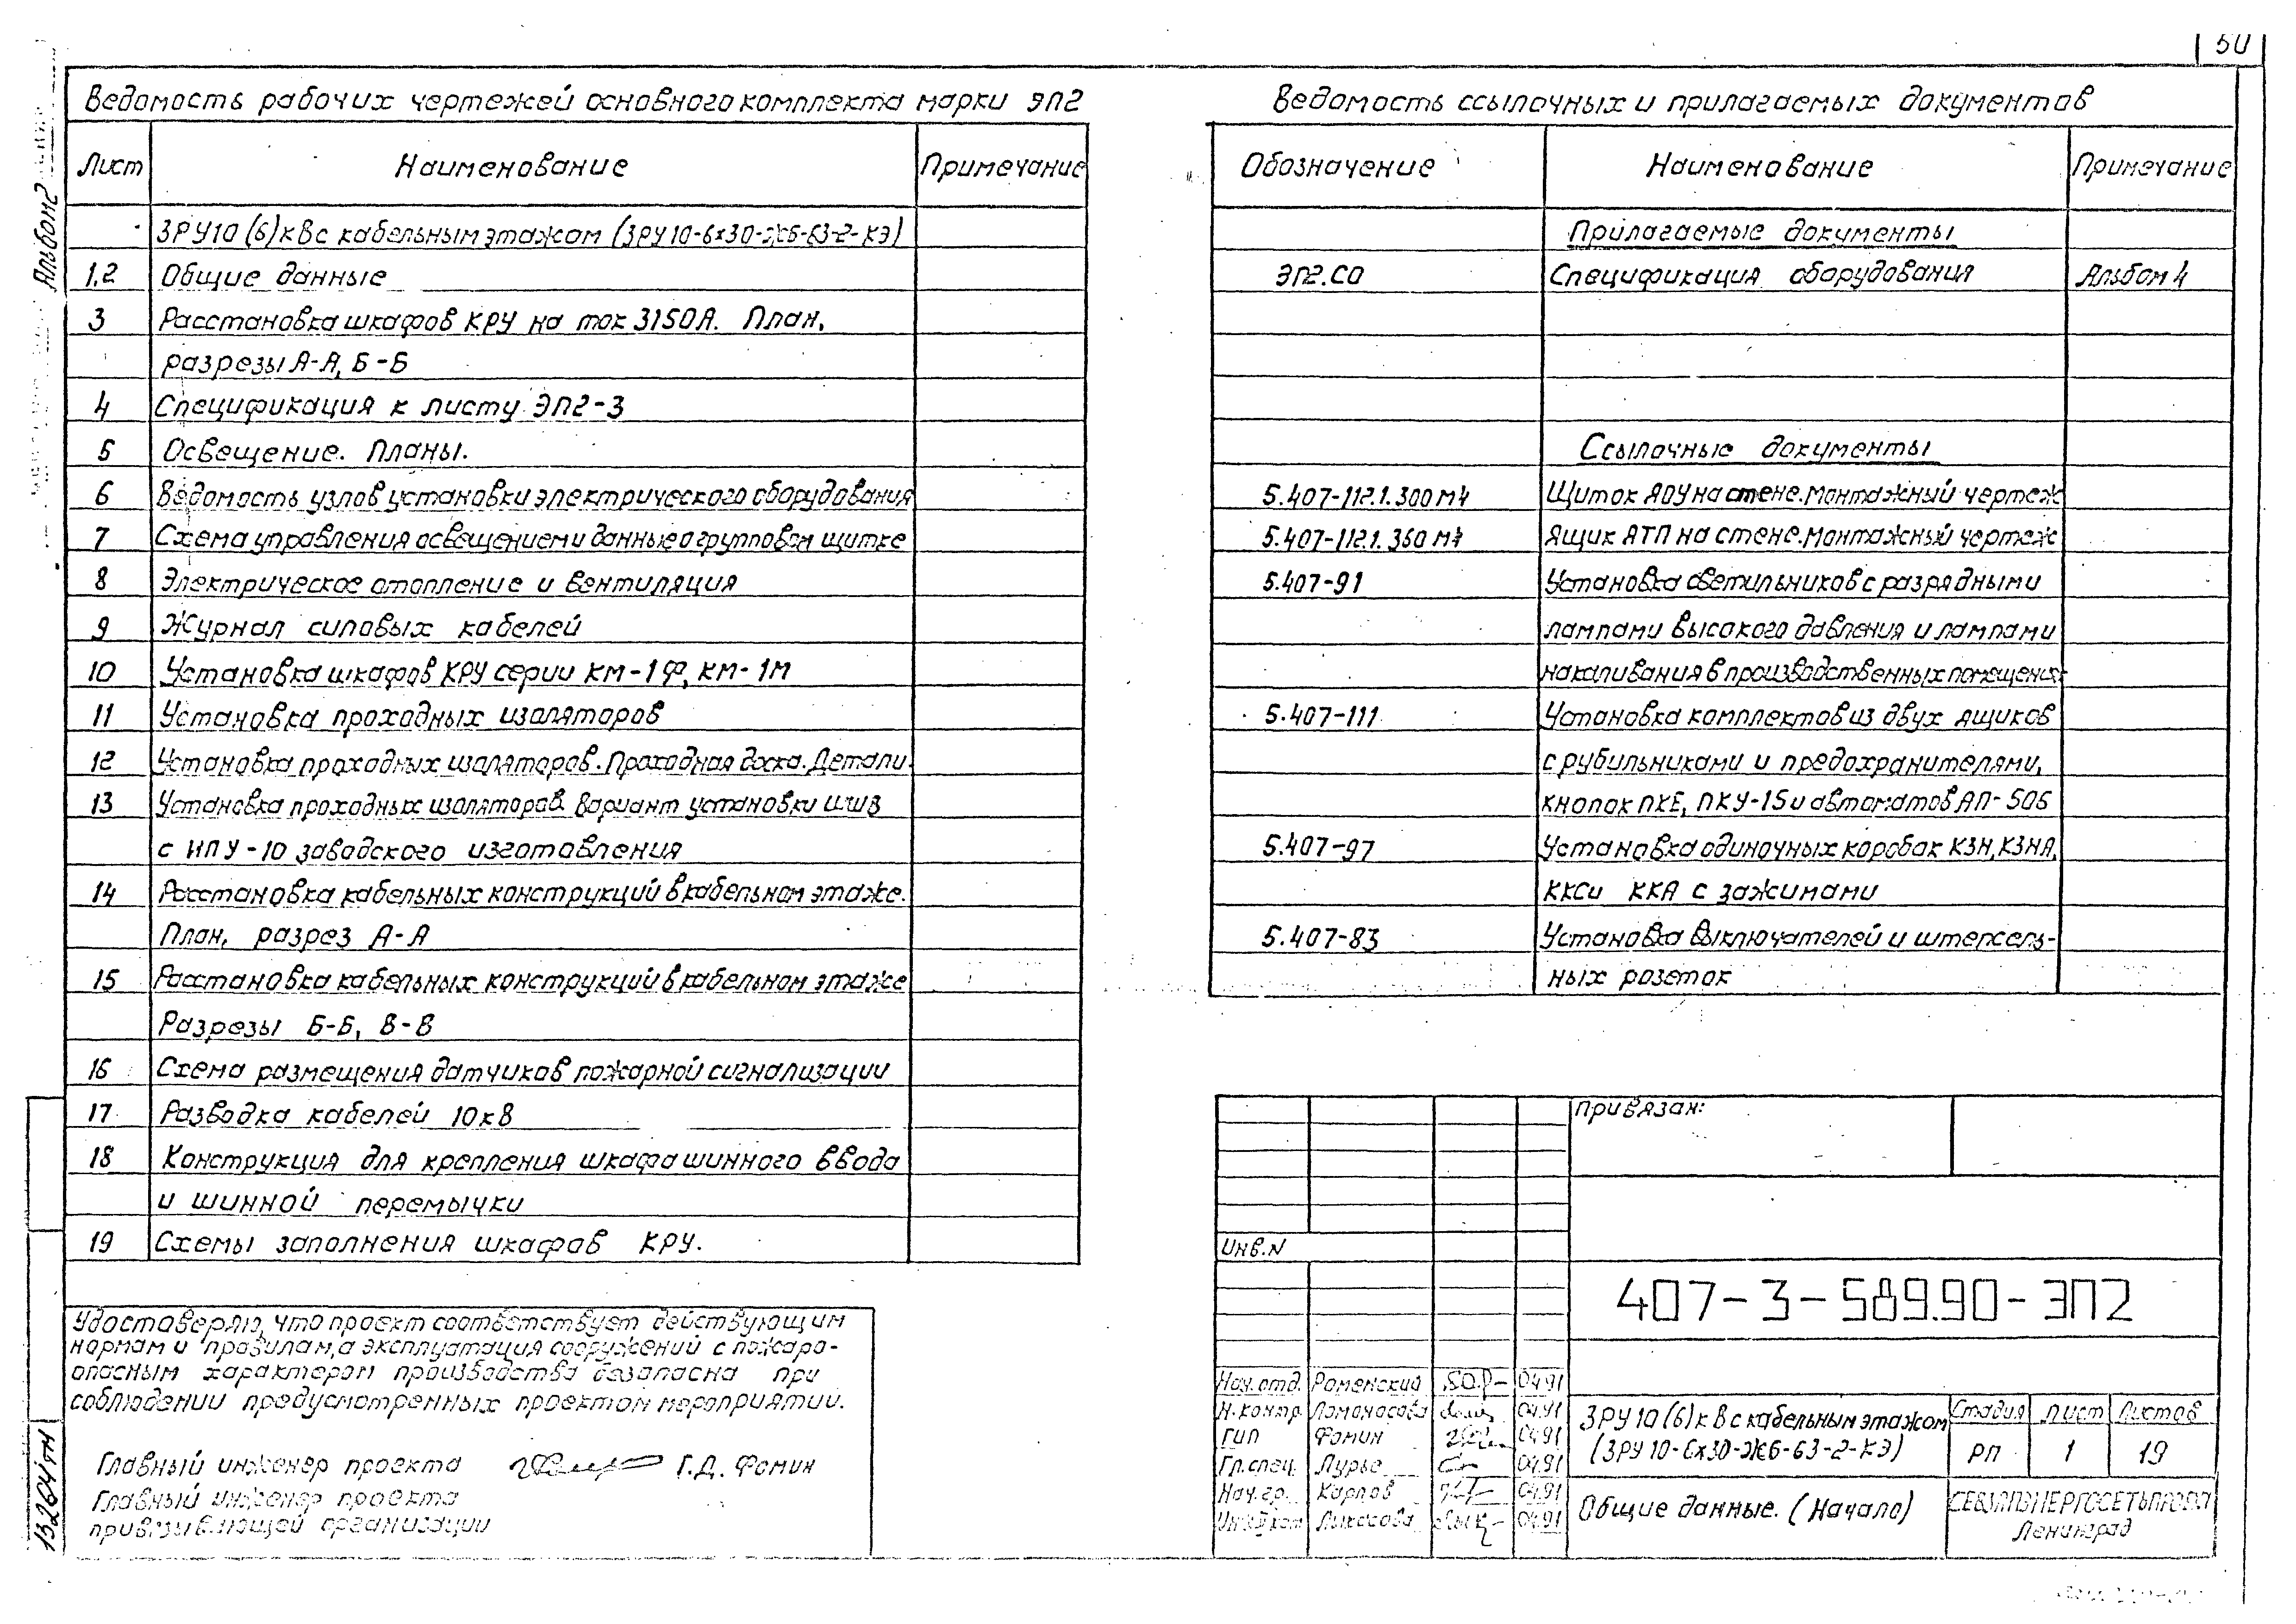 50
Альбом 2
Ведомость рабочих чертежей основного комплекта марки ЭП2
Лист Наименование Примечание
ЗРУ10 (6) кВ с кабельным этажом (ЗРУ10-6х30-ЖБ-63-2-КЭ)
1,2 Общие данные
3 Расстановка шкафов КРУ на ток 3150А. План,
разрезы А-А, Б-Б
4 Спецификация к листу ЭП2-3
5 Освещение. Планы.
6 Ведомость узлов установки электрического оборудования
7 Схема управления освещением и данные о групповом щитке
8 Электрическое отопление и вентиляция
9 Журнал силовых кабелей
10 Установка шкафов КРУ серии КМ-1Ф, КМ-1М
11 Установка проходных изоляторов
12 Установка проходных изоляторов. Проходная доска. Детали.
13 Установка проходных изоляторов. Вариант установки ШШВ
с ИПУ-10 заводского изготовления
14 Расстановка кабельных конструкций в кабельном этаже.
План, разрез А-А
15 Расстановка кабельных конструкций в кабельном этаже
Разрезы Б-Б, В-В
16 Схема размещения датчиков пожарной сигнализации
17 Разводка кабелей 10кВ
18 Конструкция для крепления шкафа шинного ввода
и шинной перемычки
19 Схемы заполнения шкафов КРУ.
Удостоверяю, что проект соответствует действующим
нормам и правилам, а эксплуатация сооружений с пожаро-
опасным характером производства безопасна при
соблюдении предусмотренных проектом мероприятий.
Главный инженер проекта Г.Д. Фомин
Главный инженер проекта
привязывающей организации
13264тм
Ведомость ссылочных и прилагаемых документов
Обозначение Наименование Примечание
Прилагаемые документы
ЭП2.СО Спецификация оборудования Альбом 4
Ссылочные документы
5.407-112.1.300 МЧ Щиток ЯОУ на стене. Монтажный чертеж
5.407-112.1.360 МЧ Ящик ЯТП на стене. Монтажный чертеж
5.407-91 Установка светильников с разрядными
лампами высокого давления и лампами
накаливания в производственных помещениях
5.407-111 Установка комплектов из двух ящиков
с рубильниками и предохранителями,
кнопок ПКЕ, ПКУ-15 и автоматов АП-50Б
5.407-97 Установка одиночных коробок КЗН, КЗНА,
ККС и ККА с зажимами
5.407-83 Установка выключателей и штепсель-
ных розеток
Привязан:
Инв.N
407-3-589.90-ЭП2
Нач.отд. Роменский 04.91
Н.контр. Ломоносова 04.91
ГИП Фомин 04.91
Гл.спец. Лурье 04.91
Нач.гр. Карпов 04.91
04.91
ЗРУ10 (6) кВ с кабельным этажом
(ЗРУ10-6х30-ЖБ-63-2-КЭ)
Стадия Лист Листов
РП 1 19
Общие данные. (Начало)
СЕВЗАПЭНЕРГОСЕТЬПРОЕКТ
Ленинград